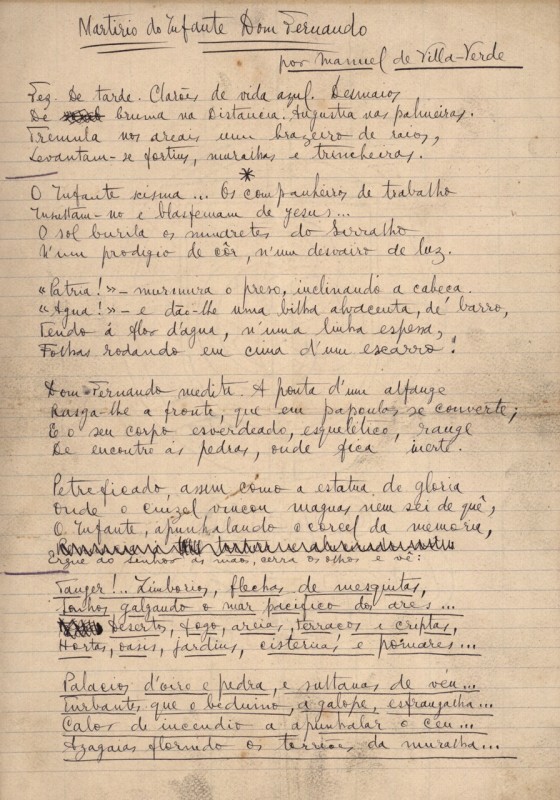 Martirio do Infante Dom Fernando
por Manuel de Villa-Verde
Fez. De tarde. Clarões de vida azul. Desmaios
De bruma na Distancia. Angustia nas palmeiras.
Tremula nos areais um brazeiro de raios,
Levantam-se fortins, muralhas e trincheiras.
*
O Infante scisma... Os companheiros de trabalho
Insultam-no e blasfemam de Jesus...
O sol burila os mindretes do Serralho
N'um prodigio de côr, n'um desvairo de luz.
«Patria!» - murmura o preso, inclinando a cabeça.
«Agua!» - e dão-lhe uma bilha alvacenta, de barro,
Tendo á flor d'agua, n'uma linha espessa,
Folhas rodando em cima d'um escarro!
Dom Fernando medita. A ponta d'um alfange
Rasga-lhe a fronte, que em papoulas se converte;
E o seu corpo esverdeado, esquelético, range
De encontro ás pedras, onde fica inerte.
Petreficado, assim como a estatua de gloria
Onde o cinzel vincou maguas nem sei de quê,
O Infante, apunhalando o corcel da memoria,
Ergue ao Senhor as mãos, cerra os olhos e vê:
Tanger!.. Zimborios, flechas de mesquitas,
Sonhos galgando o mar pacifico dos ares...
Desertos, fogo, areias, terraços e criptas,
Hortas, oasis, jardins, cisternas e pomares...
Palacios d'oiro e pedra, e sultanas de véu...
Turbantes que o beduino, a galope, esfrangalha...
Calor de incendio a apunhalar o céu...
Azagaias florindo os torreões da muralha...